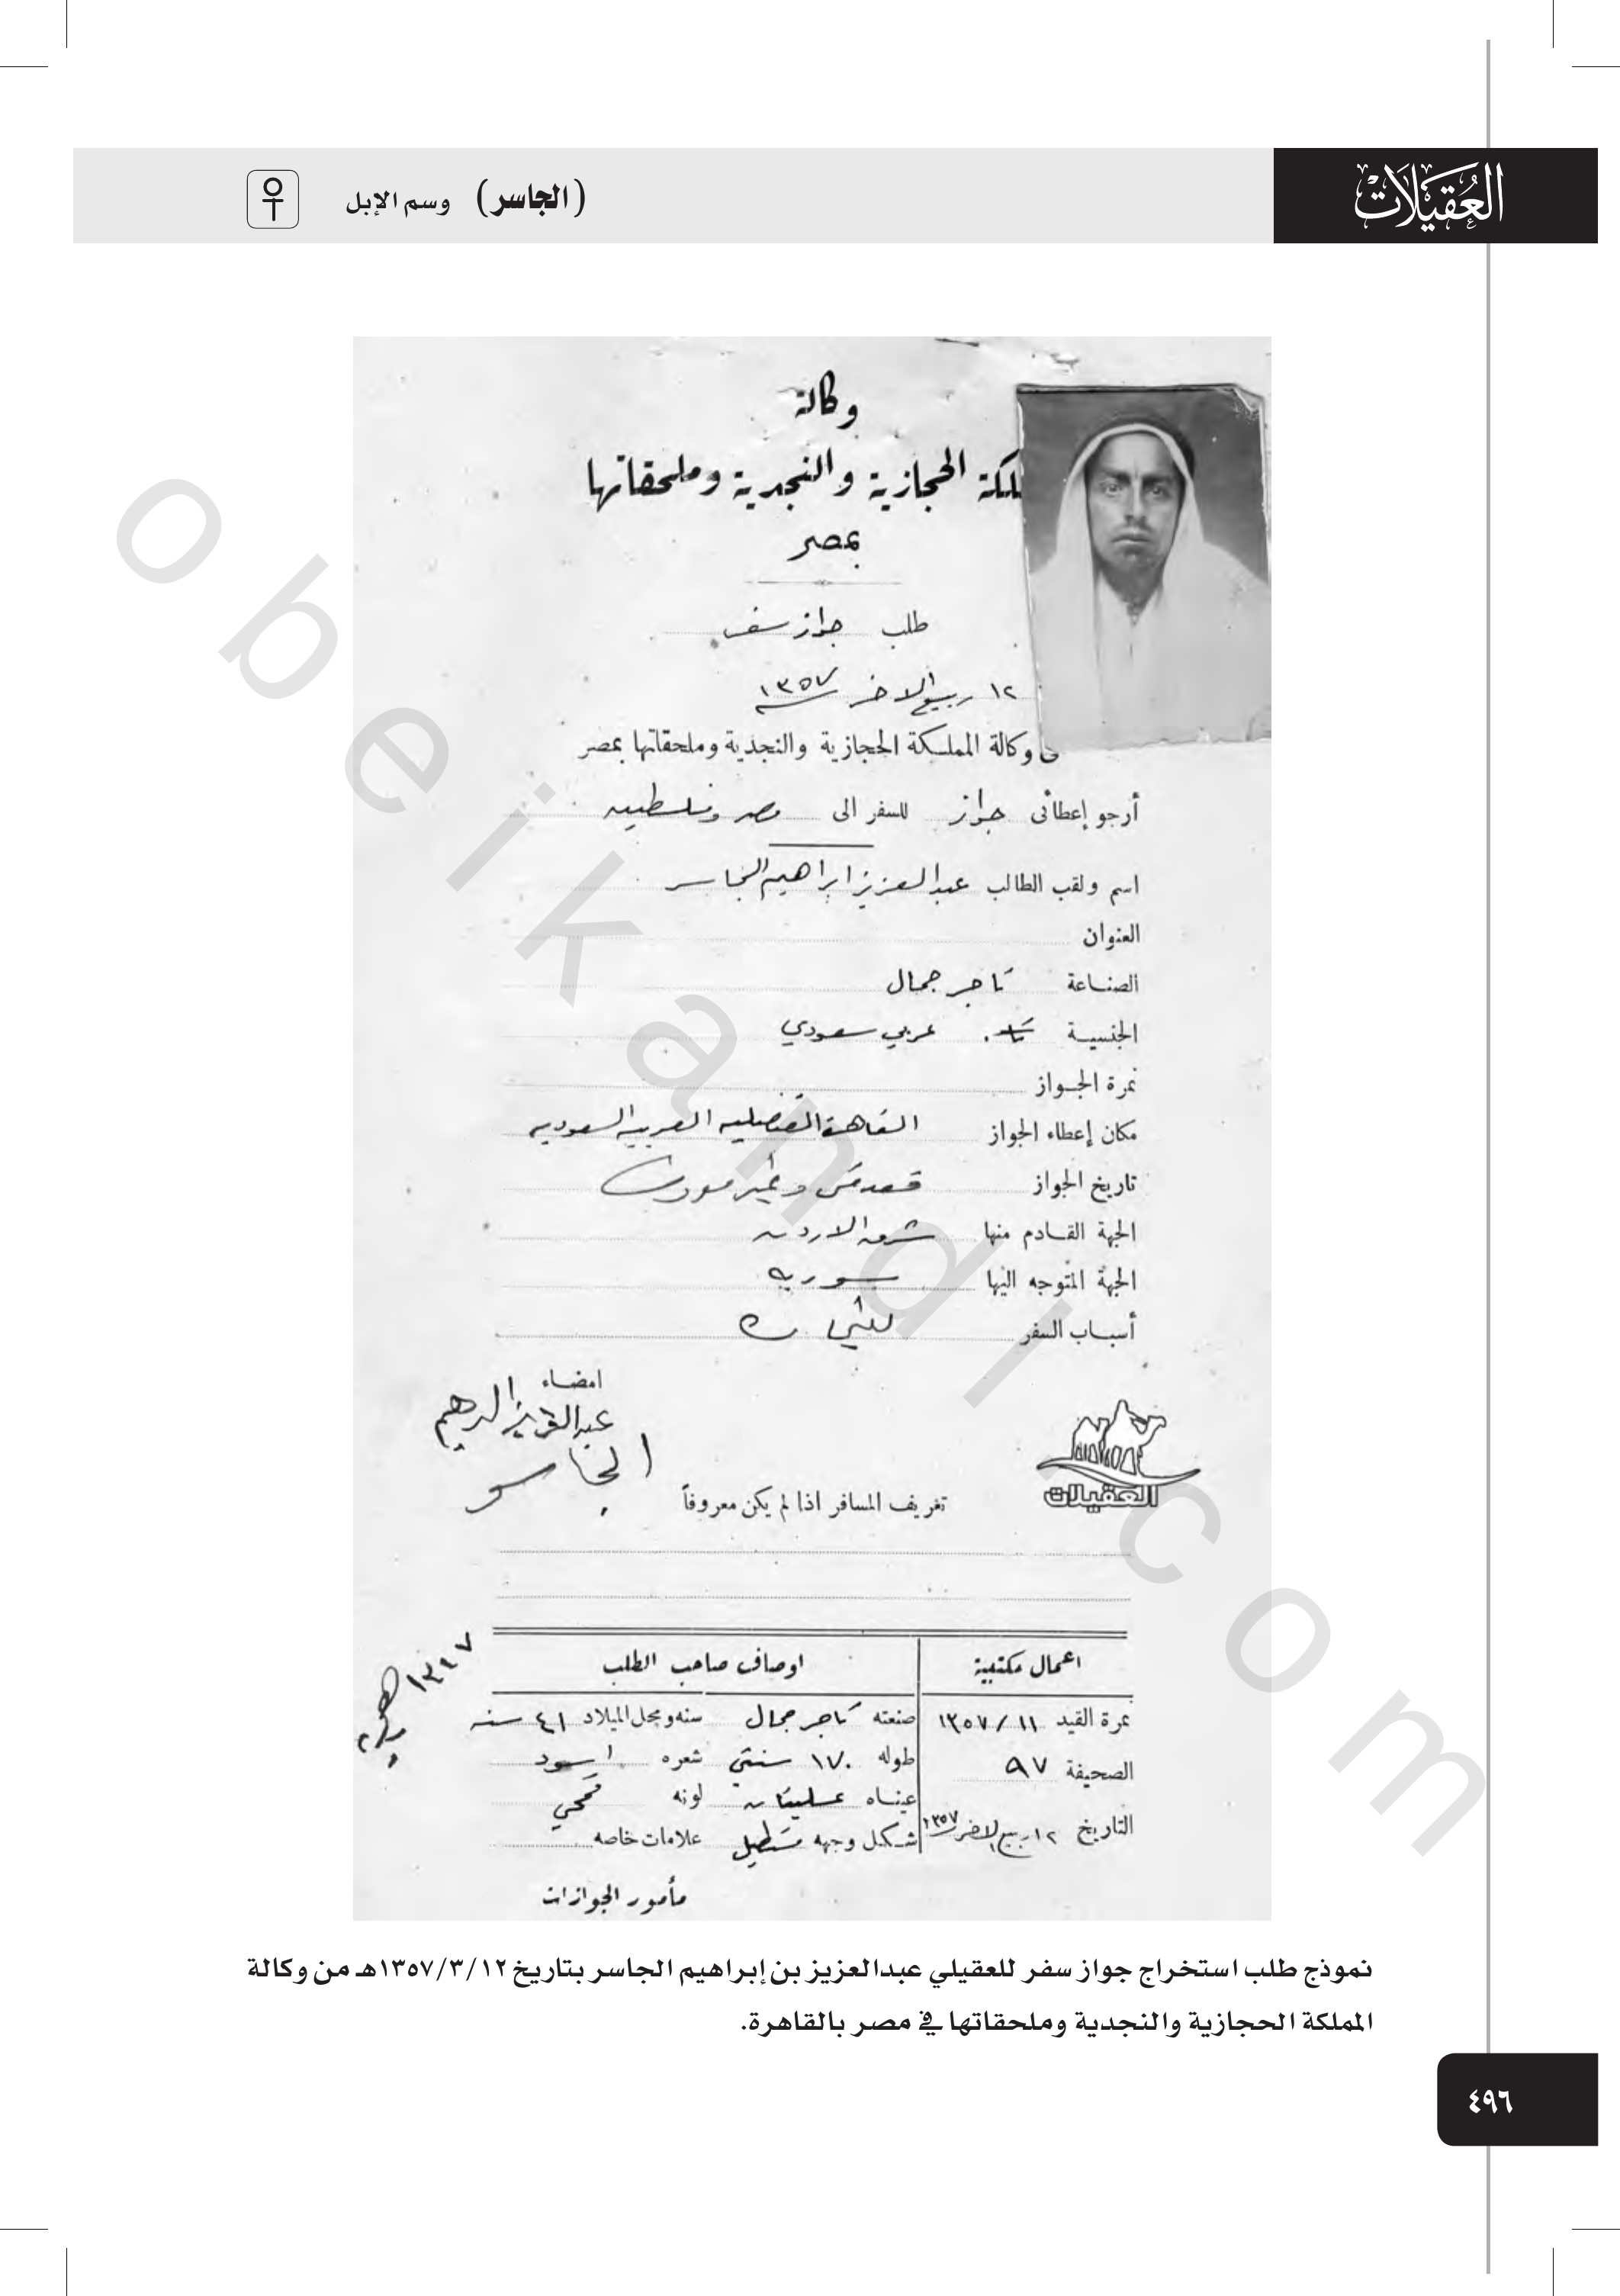 العُقَيْلَاتْ
(الجاسر) وسم الإبل
وكالة
لكة الحجازية والنجدية وملحقاتها
بمصر
طلب جواز سفر
١٢ ربيع الاخر ١٣٥٧
وكالة المملكة الحجازية والنجدية وملحقاتها بمصر
أرجو إعطائى جواز للسفر الى مصر وفلسطين
اسم ولقب الطالب عبدالعزيز ابراهيم الجاسر
العنوان
الصناعة تاجر جمال
الجنسية عربي سعودي
نمرة الجواز
مكان إعطاء الجواز القاهرة القنصلية العربية السعودية
تاريخ الجواز
الجهة القادم منها شرق الاردن
الجهة المتوجه اليها سورية
أسباب السفر
امضاء
عبدالعزيز البرهيم
الجاسر
العقيلات
تعريف المسافر اذا لم يكن معروفاً
اعمال مكتبية
اوصاف صاحب الطلب
نمرة القيد ١١ / ١٣٥٧ صنعته تاجر جمال سنه ومحل الميلاد ٤١ سنه
الصحيفة ٩٧ طوله ١٧٠ سنتي شعره اسود
عيناه عسليتان لونه قمحي
التاريخ ١٢ ربيع الاخر ١٣٥٧ شكل وجهه مستطيل علامات خاصه
مأمور الجوازات
نموذج طلب استخراج جواز سفر للعقيلي عبدالعزيز بن إبراهيم الجاسر بتاريخ ١٣٥٧/٣/١٢هـ من وكالة
المملكة الحجازية والنجدية وملحقاتها في مصر بالقاهرة.
٤٩٦
obeikandl.com